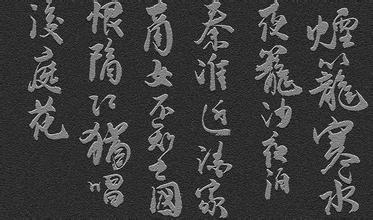 煙籠寒水
夜籠沙夜泊
秦淮近酒家
商女不知亡國
恨隔江猶唱
後庭花